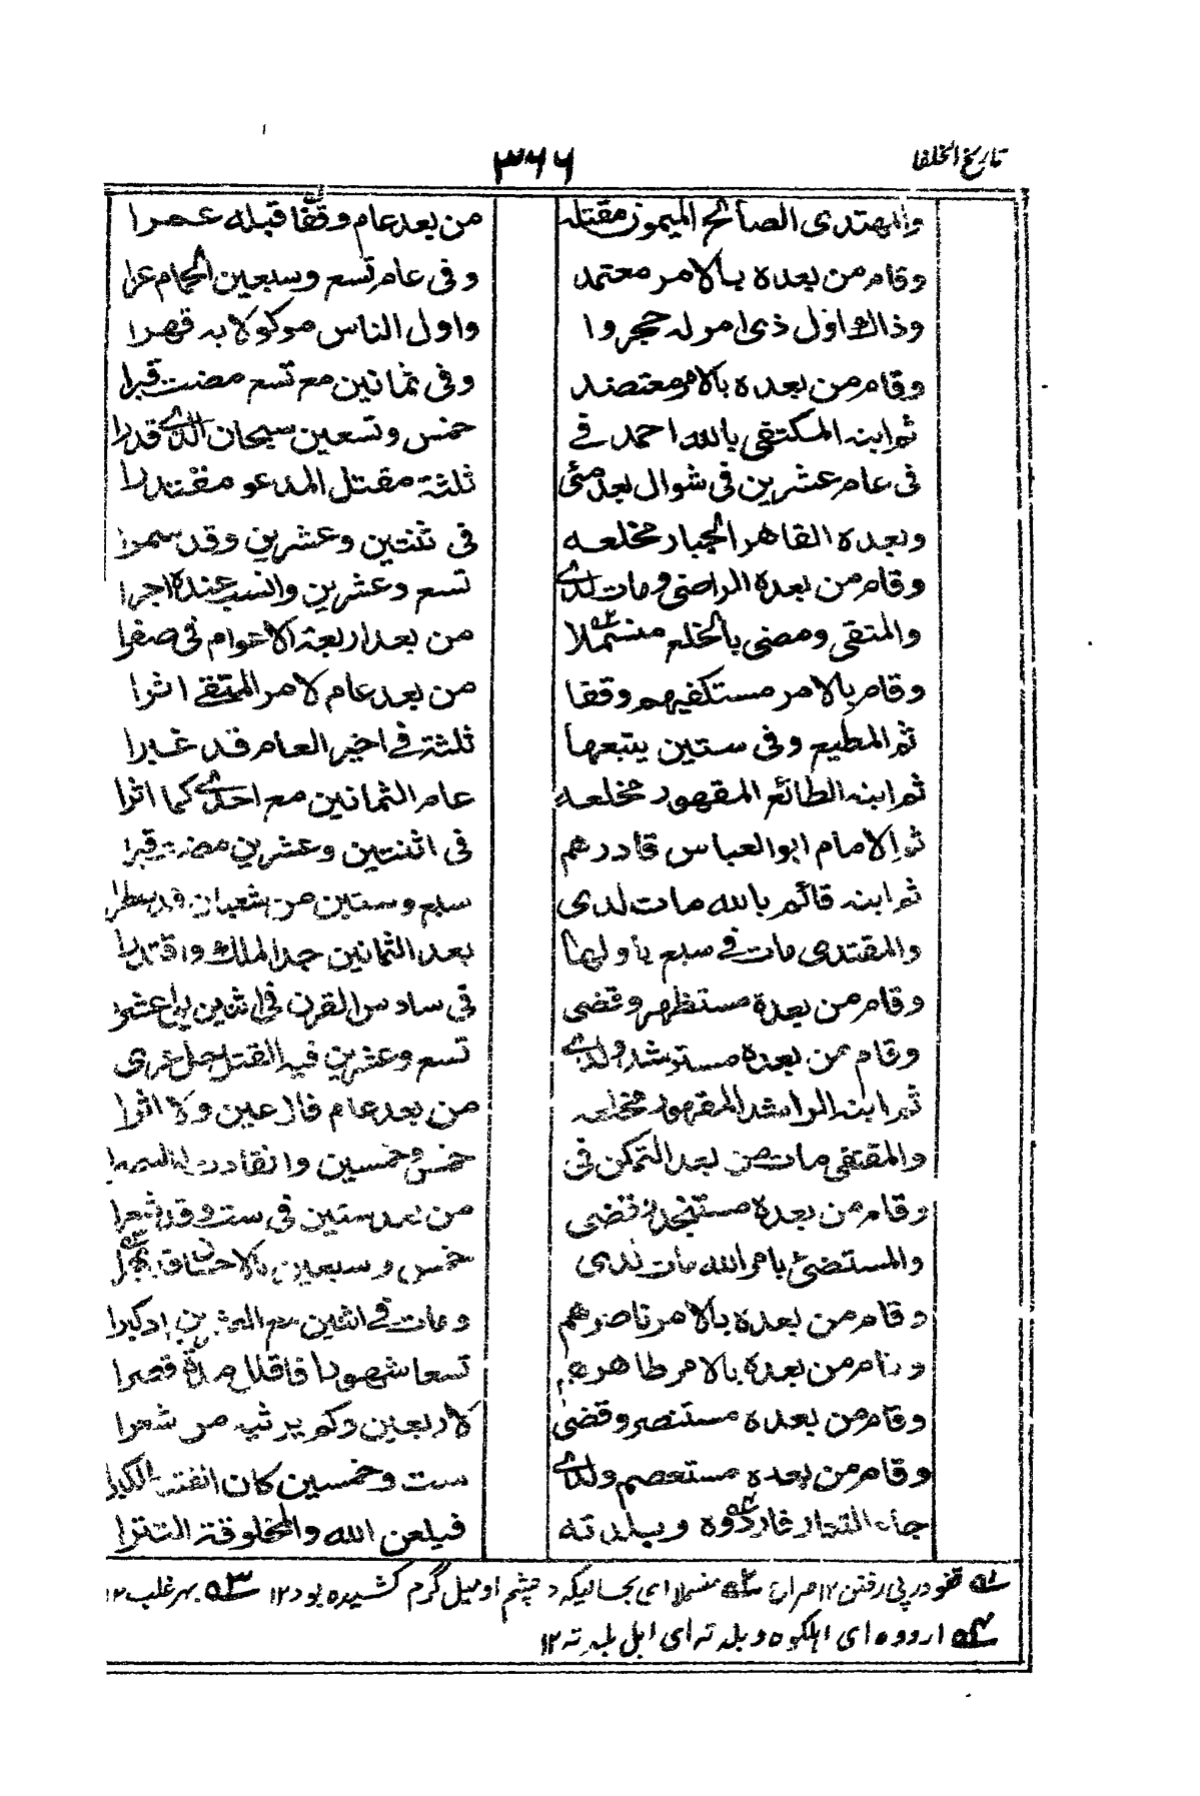 تاريخ الخلفا
٣٦٦
والمهتدى الصالح الميمون مقتله من بعد عام وقفا قبله عمرا
وقام من بعده بالامر معتمد وفى عام تسع وسبعين الحمام عرا
وذاك اول ذى امر له حجروا واول الناس موكولا به قهرا
وقام من بعده بالامر معتضد وفى ثمانين مع تسع مضت قبرا
ثم ابنه المكتفى بالله احمد فى خمس وتسعين سبحان الذى قدرا
فى عام عشرين فى شوال بعد مئى ثلثة مقتل المدعو مقتدرا
وبعده القاهر الجبار مخلعه فى ثنتين وعشرين وقد سمرا
وقام من بعده الراضى ومات لدى تسع وعشرين وانسب عنده اجرا
والمتقى ومضى بالخلع منسملا من بعد اربعة الاعوام فى صفرا
وقام بالامر مستكفيهم وقفا من بعد عام لامر المتقى اثرا
ثم المطيع وفى ستين يتبعها ثلثة فى اخير العام قد غبرا
ثم ابنه الطائع المقهور مخلعه عام الثمانين مع احدى كما اثرا
ثم الامام ابو العباس قادرهم فى اثنتين وعشرين مضت قبرا
ثم ابنه قائم بالله مات لدى سبع وستين من شعبان قد سطرا
والمقتدى مات فى سبع باولها بعد الثمانين جد الملك واقتدرا
وقام من بعده مستظهر وقضى فى سادس القرن فى اثنين بلى عشر
وقام من بعده مسترشد ولدى تسع وعشرين فيه القتل حل عرى
ثم ابنه الراشد المقهور مخلعه من بعد عام فلا عين ولا اثرا
والمقتفى مات من بعد التمكن فى خمس وخمسين وانقادت له النصرا
وقام من بعده مستنجد وقضى من بعد ستين فى ست وقد شعرا
والمستضئ بامر الله مات لدى خمس وسبعين بالاحسان قد
وقام من بعده بالامر ناصرهم ومات فى اثنين مع العشرين اذ كبرا
وقام من بعده بالامر ظاهرهم تسعا شهورا فاقلل مدة قصرا
وقام من بعده مستنصر وقضى لاربعين وكم يرثيه من شعرا
وقام من بعده مستعصم ولدى ست وخمسين كان الفتنة الكبرا
جاء التتار فاردوه وبلدته فيلعن الله والمخلوقة التترا
قفو درپى رفتن ١٢ صراح منسملا اى بحاليكه د چشم او ميل گرم كشيده بود ١٢ بهر غلب ١٢
اردوه اى اهلكوه وبلدته اى اهل بلدته ١٢